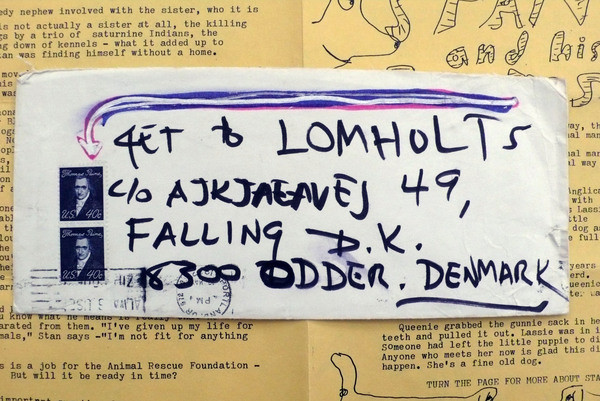 edy nephew involved with the sister, who it is
is not actually a sister at all, the killing
gs by a trio of saturnine Indians, the
ng down of kennels - what it added up to
tan was finding himself without a home.
STAN
and his
GET to LOMHOLTS
c/o AJKJAEAVEJ 49,
FALLING D.K.
8300 ODDER. DENMARK
Thomas Paine
US 40c
Thomas Paine
US 40c
PM
arated from them. "I've given up my life for
mals," Stan says -"I'm not fit for anything
s is a job for the Animal Rescue Foundation -
But will it be ready in time?
Queenie grabbed the gunnie sack in he
teeth and pulled it out. Lassie was in i
Someone had left the little puppie to di
Anyone who meets her now is glad this di
happen. She's a fine old dog.
TURN THE PAGE FOR MORE ABOUT STA